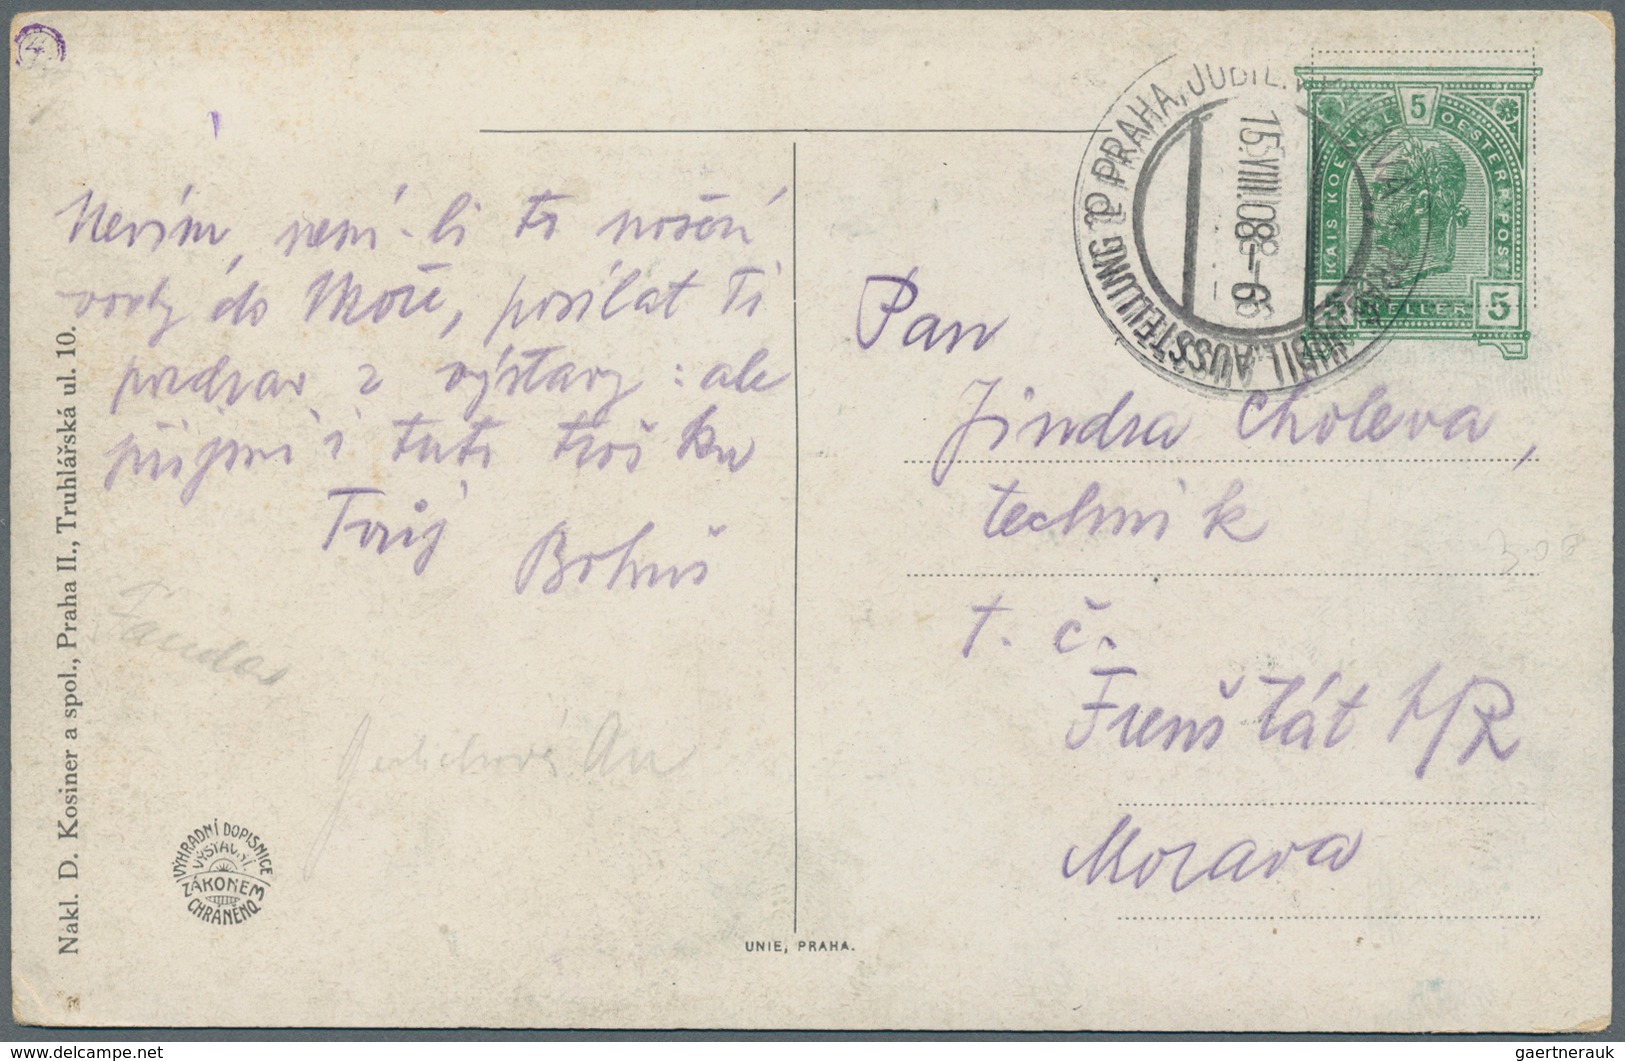 Nevím, není-li to nošení
vody do Moře, posílat Ti
pozdrav z výstavy: ale
přijmi i tuto trošku
Tvůj
Bohuš
Pan
Jindra Choleva,
technik
t. č.
Frenštát p/R
Morava
PRAHA, JUBIL.
15.VIII.08-6
JUBIL. AUSSTELLUNG
KAIS KOENIGL 5 OESTERR POST
5 HELLER 5
Nakl. D. Kosiner a spol., Praha II., Truhlářská ul. 10.
VÝHRADNÍ DOPISNICE
VÝSTAVNÍ
ZÁKONEM
CHRÁNĚNO
UNIE, PRAHA.
308
delcampe.net
gaertnerauk